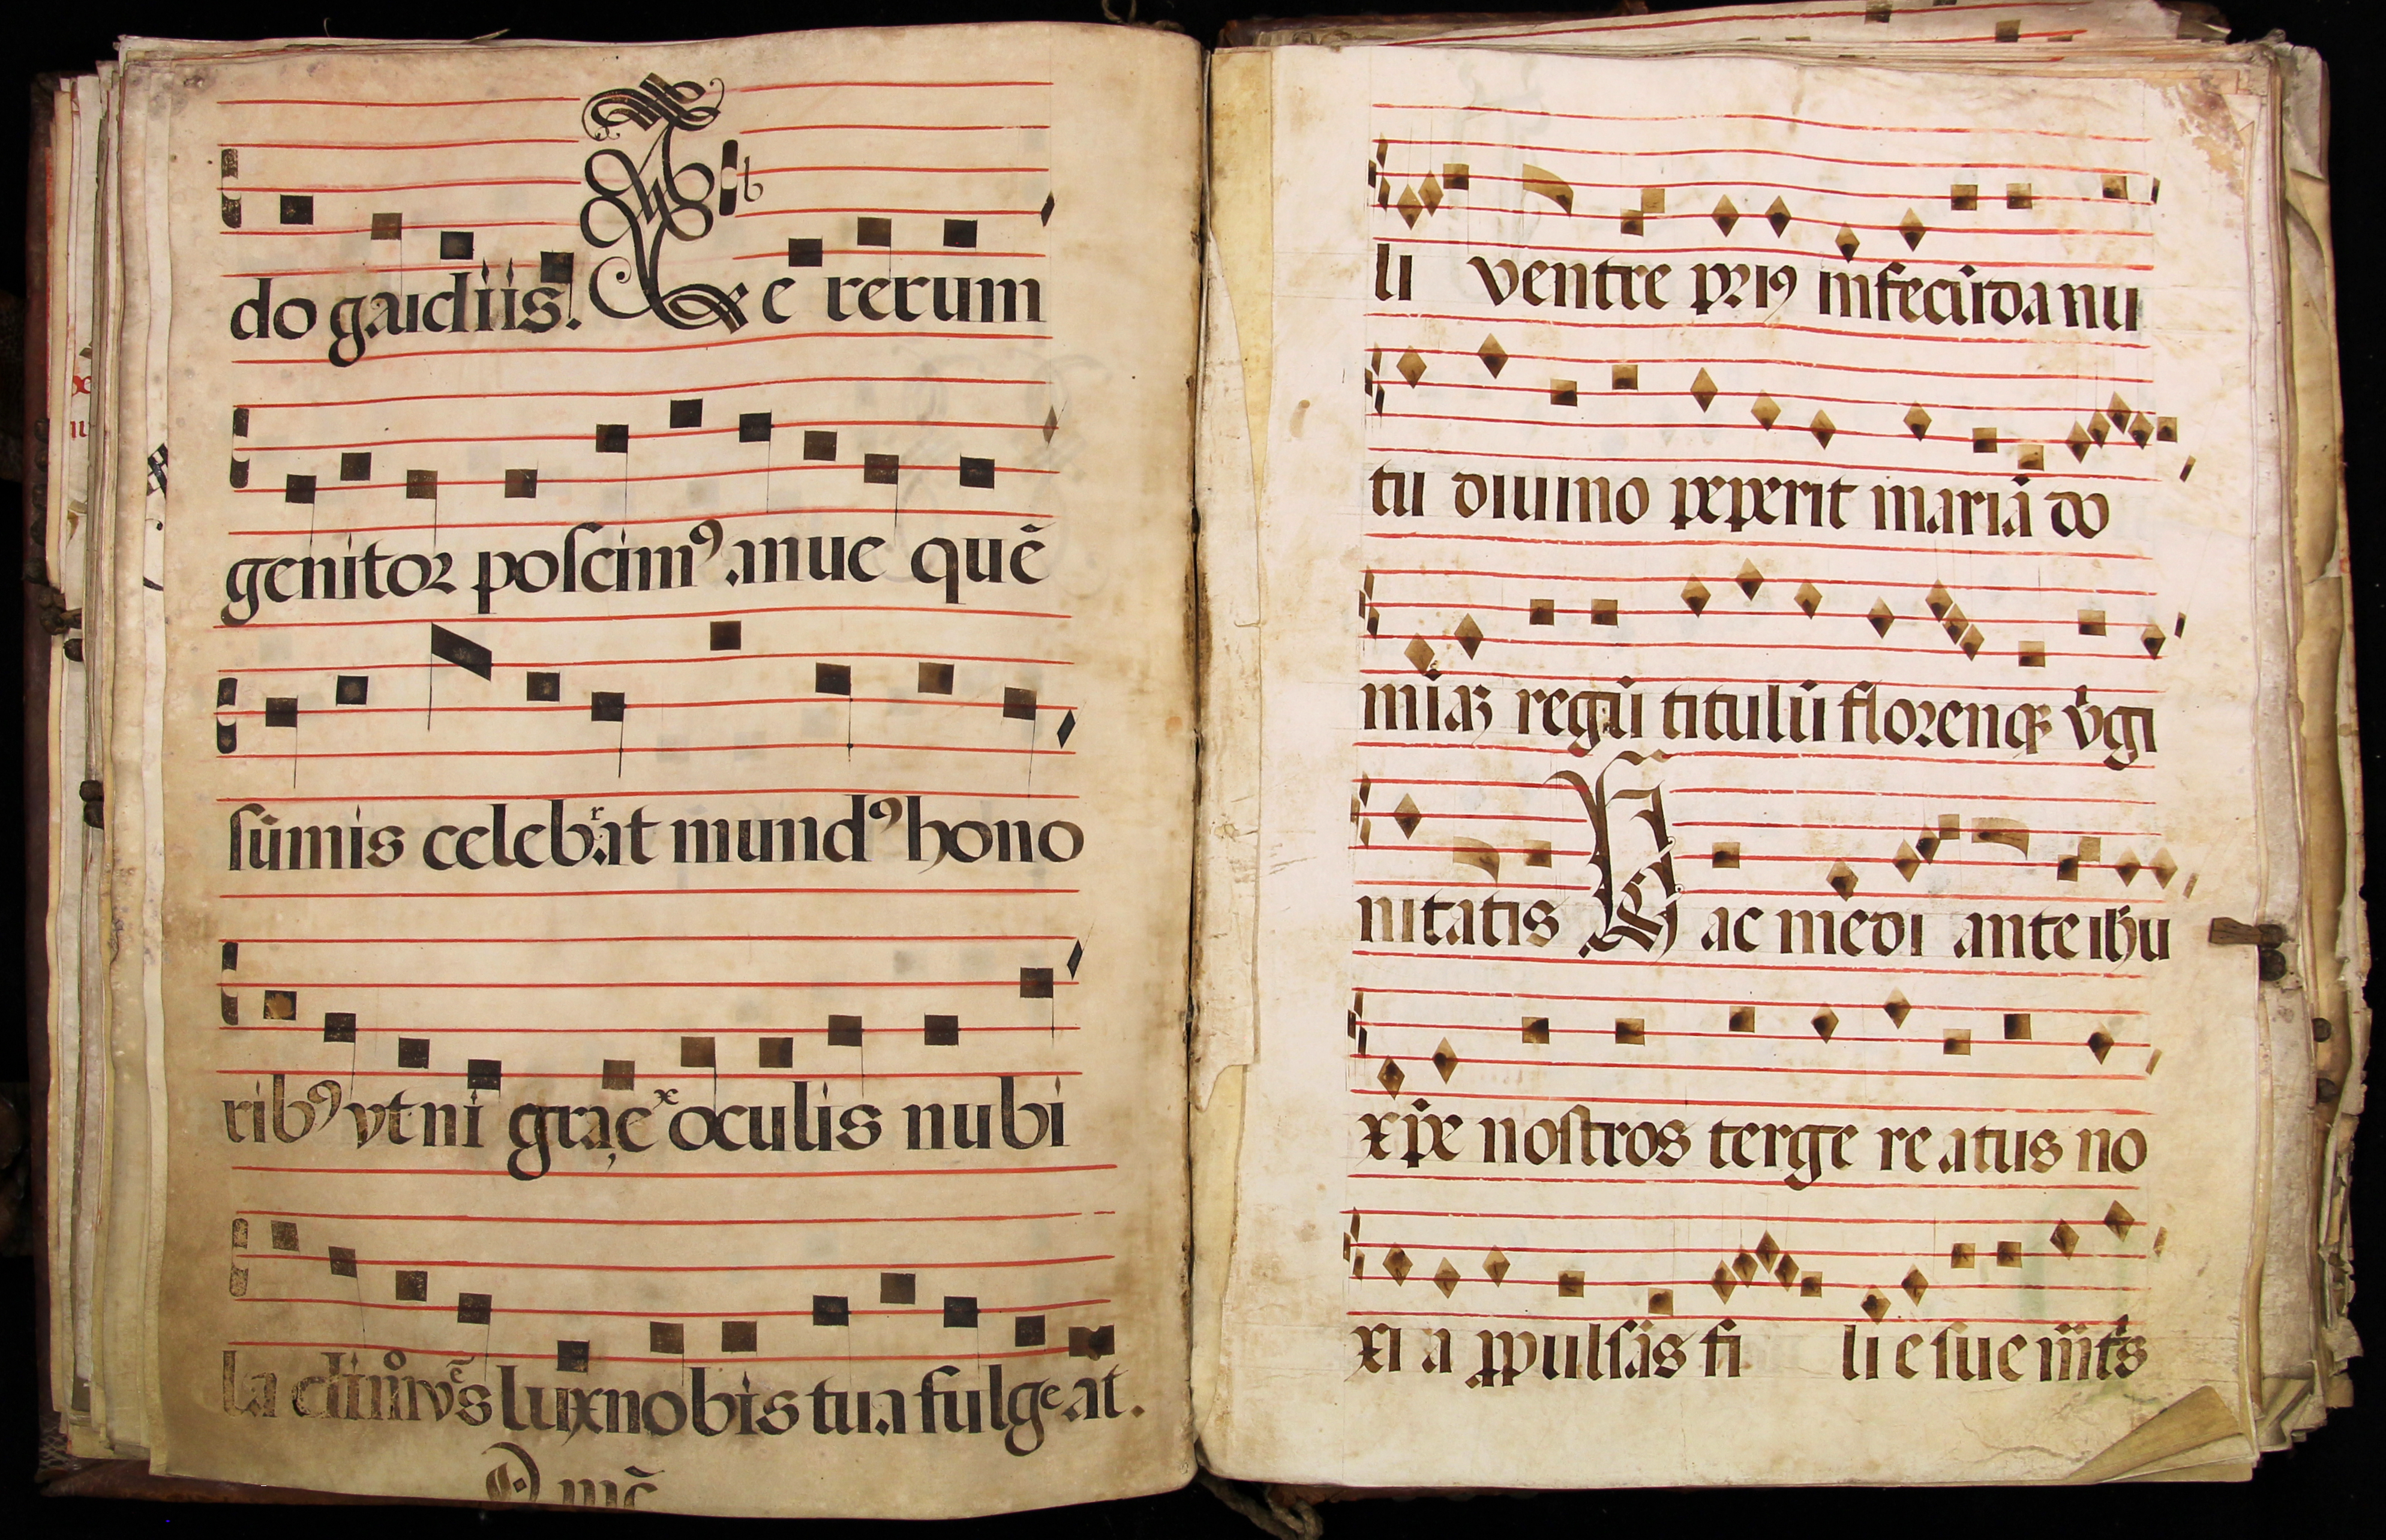 do gaudiis. Te rerum
genitor poscimꝰ. anue quē
sūmis celebrat mundꝰ hono
ribꝰ vt ni graçe ͯ oculis nubi
la lux nobis tua fulgeat.
li ventre priꝰ infecūda nu
tu diuino peperit mariā do
regū titulū florenqꝫ v̇gi
nitatis Hac medi ante ihu
xp̄e nostros terge reatus no
xi a ꝓpulsās fi li e sue